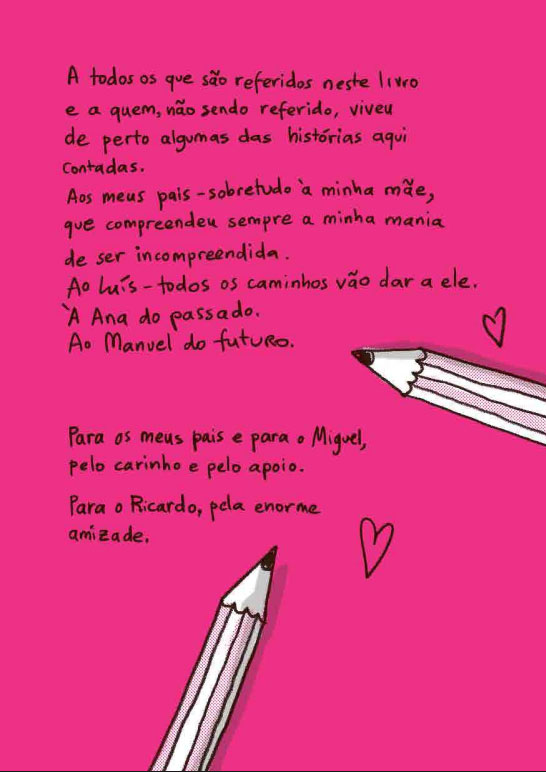 A todos os que são referidos neste livro
e a quem, não sendo referido, viveu
de perto algumas das histórias aqui
contadas.
Aos meus pais - sobretudo à minha mãe,
que compreendeu sempre a minha mania
de ser incompreendida.
Ao Luís - todos os caminhos vão dar a ele.
À Ana do passado.
Ao Manuel do futuro.
Para os meus pais e para o Miguel,
pelo carinho e pelo apoio.
Para o Ricardo, pela enorme
amizade.